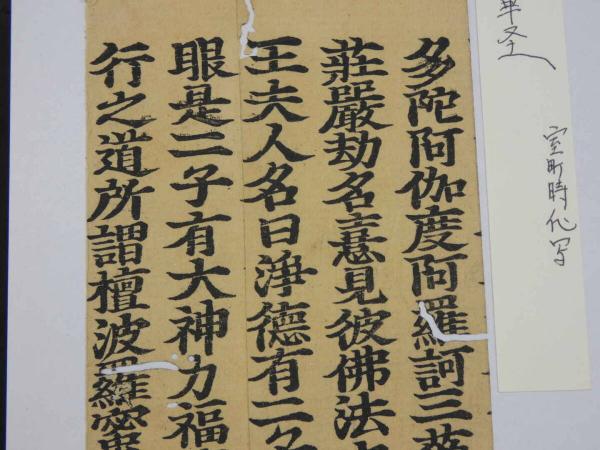 室町時代写
多陀阿伽度阿羅訶三
莊嚴劫名憙見彼佛法
王夫人名曰淨德有二
眼是二子有大神力福
行之道所謂檀波羅蜜